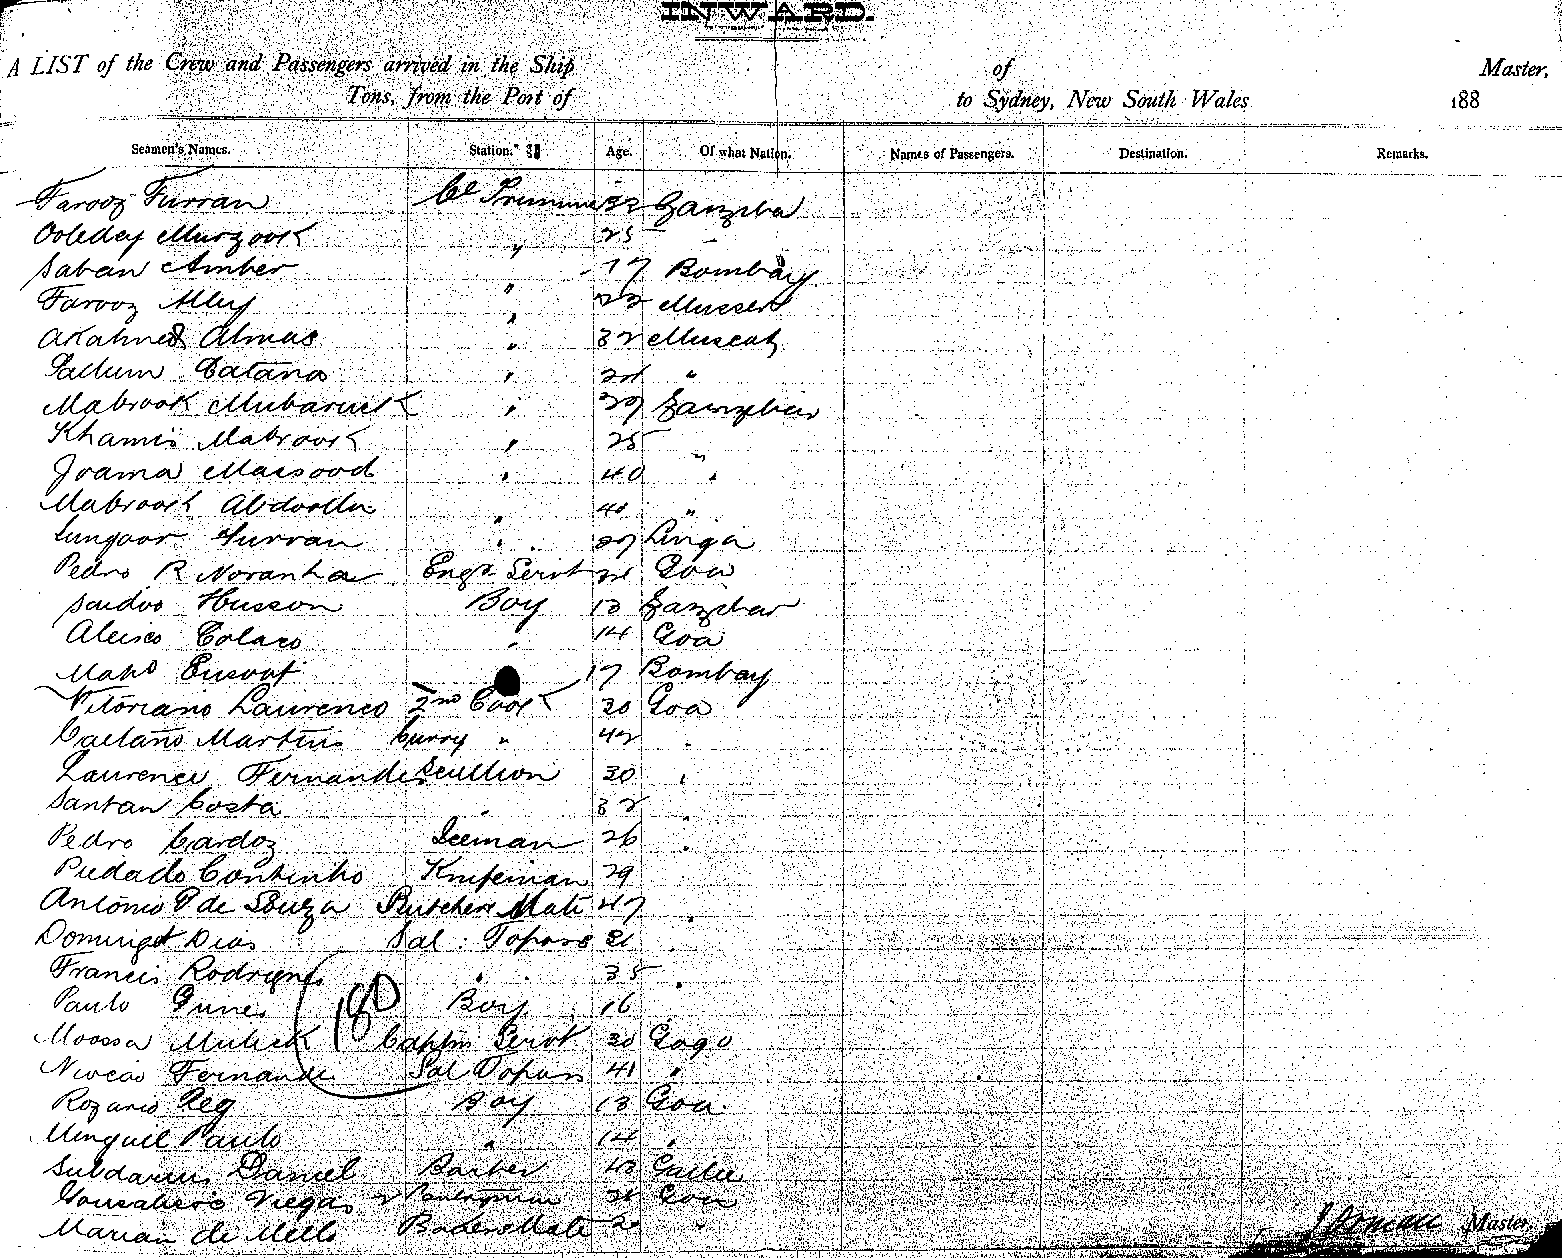 INWARD.
A LIST of the Crew and Passengers arrived in the Ship of Master,
Tons, from the Port of to Sydney, New South Wales 188
Seamen's Names. Station. Age. Of what Nation. Names of Passengers. Destination. Remarks.
Farooz Furran Cl Trimmer 32 Zanziba
Ooleday Murzook " 25
Saban Amber " 17 Bombay
Farooz Alley "
Almas " 32 Muscat
Catano " "
Mabrook Mubaruck " 29 Zanzibar
Khamis Mabrook " 25 "
Joama Massood " 40 "
Mabrook Abdoolla " 40 "
Furran " Linga
Pedro R Noranha Engr Servt Goa
Saidoo Husson Boy 13 Zanzibar
Colaco " 14 Goa
Mahd Eusoof " 17 Bombay
Vitoriano Laurenco 2nd Cook 30 Goa
Caetano Martins Curry " 42 "
Laurence Fernandes Scullion 30 "
Santan Costa " 32 "
Pedro Cardoz Iceman 26 "
Piedade Continho Knifeman 29
Antonio P de Souza Butchers Mate 47 "
Domingo Dias Sal. Topass 21 "
Francis Rodrigues " 35 "
Paulo Boy 16
Moossa Mulick Captns Servt 30 Gogo
Fernande Sal Topass 41 "
Rozario Boy 13 Goa
Minguel Paulo " 14 "
Daniel Barber
Gonsalvero Viegas 2 Pantryman Goa
Marian de Mello Bakers Mate "
180
Master.